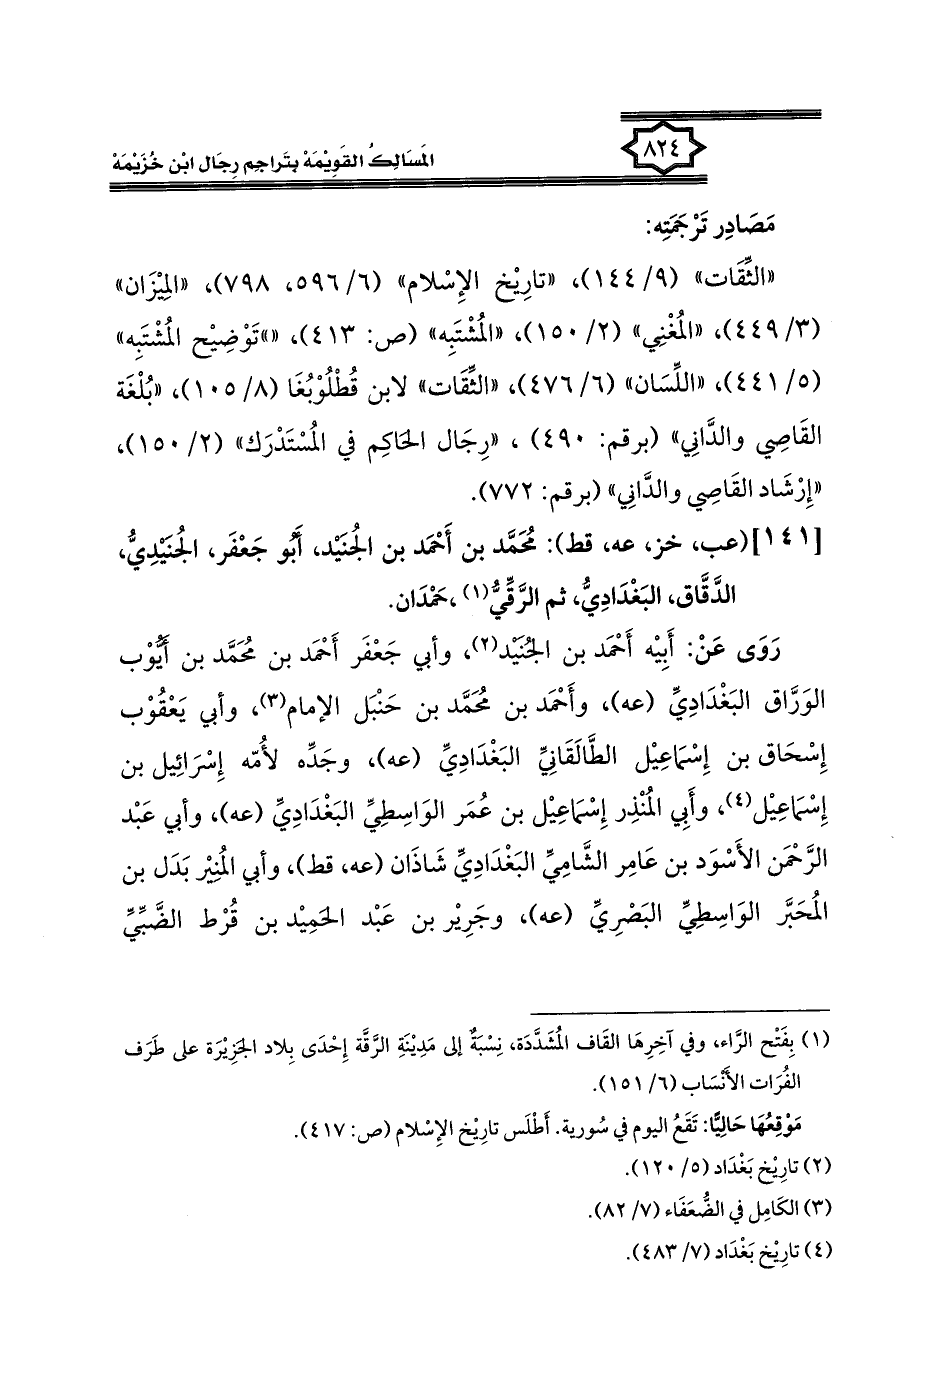 ٨٢٤
المَسَالِكُ القَوِيْمَة بِتَراجِم رِجَال ابْن خُزَيْمَة
مَصَادِر تَرْجَمَتِه:
«الثِّقَات» (٩/ ١٤٤)، «تارِيْخ الإِسْلام» (٦/ ٥٩٦، ٧٩٨)، «المِيْزَان»
(٣/ ٤٤٩)، «المُغْنِي» (٢/ ١٥٠)، «المُشْتَبِه» (ص: ٤١٣)، «»تَوْضِيْح المُشْتَبِه»
(٥/ ٤٤١)، «اللِّسَان» (٦/ ٤٧٦)، «الثِّقَات» لابن قُطْلُوْبُغَا (٨/ ١٠٥)، «بُلْغَة
القَاصِي والدَّاني» (برقم: ٤٩٠) ، «رِجَال الحَاكِم في المُسْتَدْرَك» (٢/ ١٥٠)،
«إِرْشَاد القَاصِي والدَّاني» (برقم: ٧٧٢).
[١٤١] (عب، خز، عه، قط): مُحَمَّد بن أَحْمَد بن الجُنَيْد، أَبُو جَعْفَر، الجُنَيْدِيُّ،
الدَّقَّاق، البَغْدَادِيُّ، ثم الرَّقِّيُّ(١)، حَمْدَان.
رَوَى عَنْ: أَبِيْه أَحْمَد بن الجُنَيْد(٢)، وأبي جَعْفَر أَحْمَد بن مُحَمَّد بن أَيُّوْب
الوَرَّاق البَغْدَادِيِّ (عه)، وأَحْمَد بن مُحَمَّد بن حَنْبَل الإمام(٣)، وأبي يَعْقُوْب
إِسْحَاق بن إِسْمَاعِيْل الطَّالَقَانِيِّ البَغْدَادِيِّ (عه)، وجَدِّه لأُمّه إِسْرَائِيل بن
إِسْمَاعِيْل(٤)، وأَبِي المُنْذِر إِسْمَاعِيْل بن عُمَر الوَاسِطِيِّ البَغْدَادِيِّ (عه)، وأبي عَبْد
الرَّحْمَن الأَسْوَد بن عَامِر الشَّامِيِّ البَغْدَادِيِّ شَاذَان (عه، قط)، وأبي المُنِيْر بَدَل بن
المُحَبَّر الوَاسِطِيِّ البَصْرِيِّ (عه)، وجَرِيْر بن عَبْد الحَمِيْد بن قُرْط الضَّبِّيِّ
(١) بِفَتْح الرَّاء، وفي آخِرِهَا القَاف المُشَدَّدَة، نِسْبَةٌ إلى مَدِيْنَةِ الرَّقَّة إِحْدَى بِلاد الجَزِيْرَة على طَرَف
الفُرَات الأَنْسَاب (٦/ ١٥١).
مَوْقِعُهَا حَالِيًّا: تَقَعُ اليوم في سُورية. أَطْلَس تاريْخ الإِسْلام (ص: ٤١٧).
(٢) تارِيْخ بَغْدَاد (٥/ ١٢٠).
(٣) الكَامِل في الضُّعَفَاء (٧/ ٨٢).
(٤) تارِيْخ بَغْدَاد (٧/ ٤٨٣).